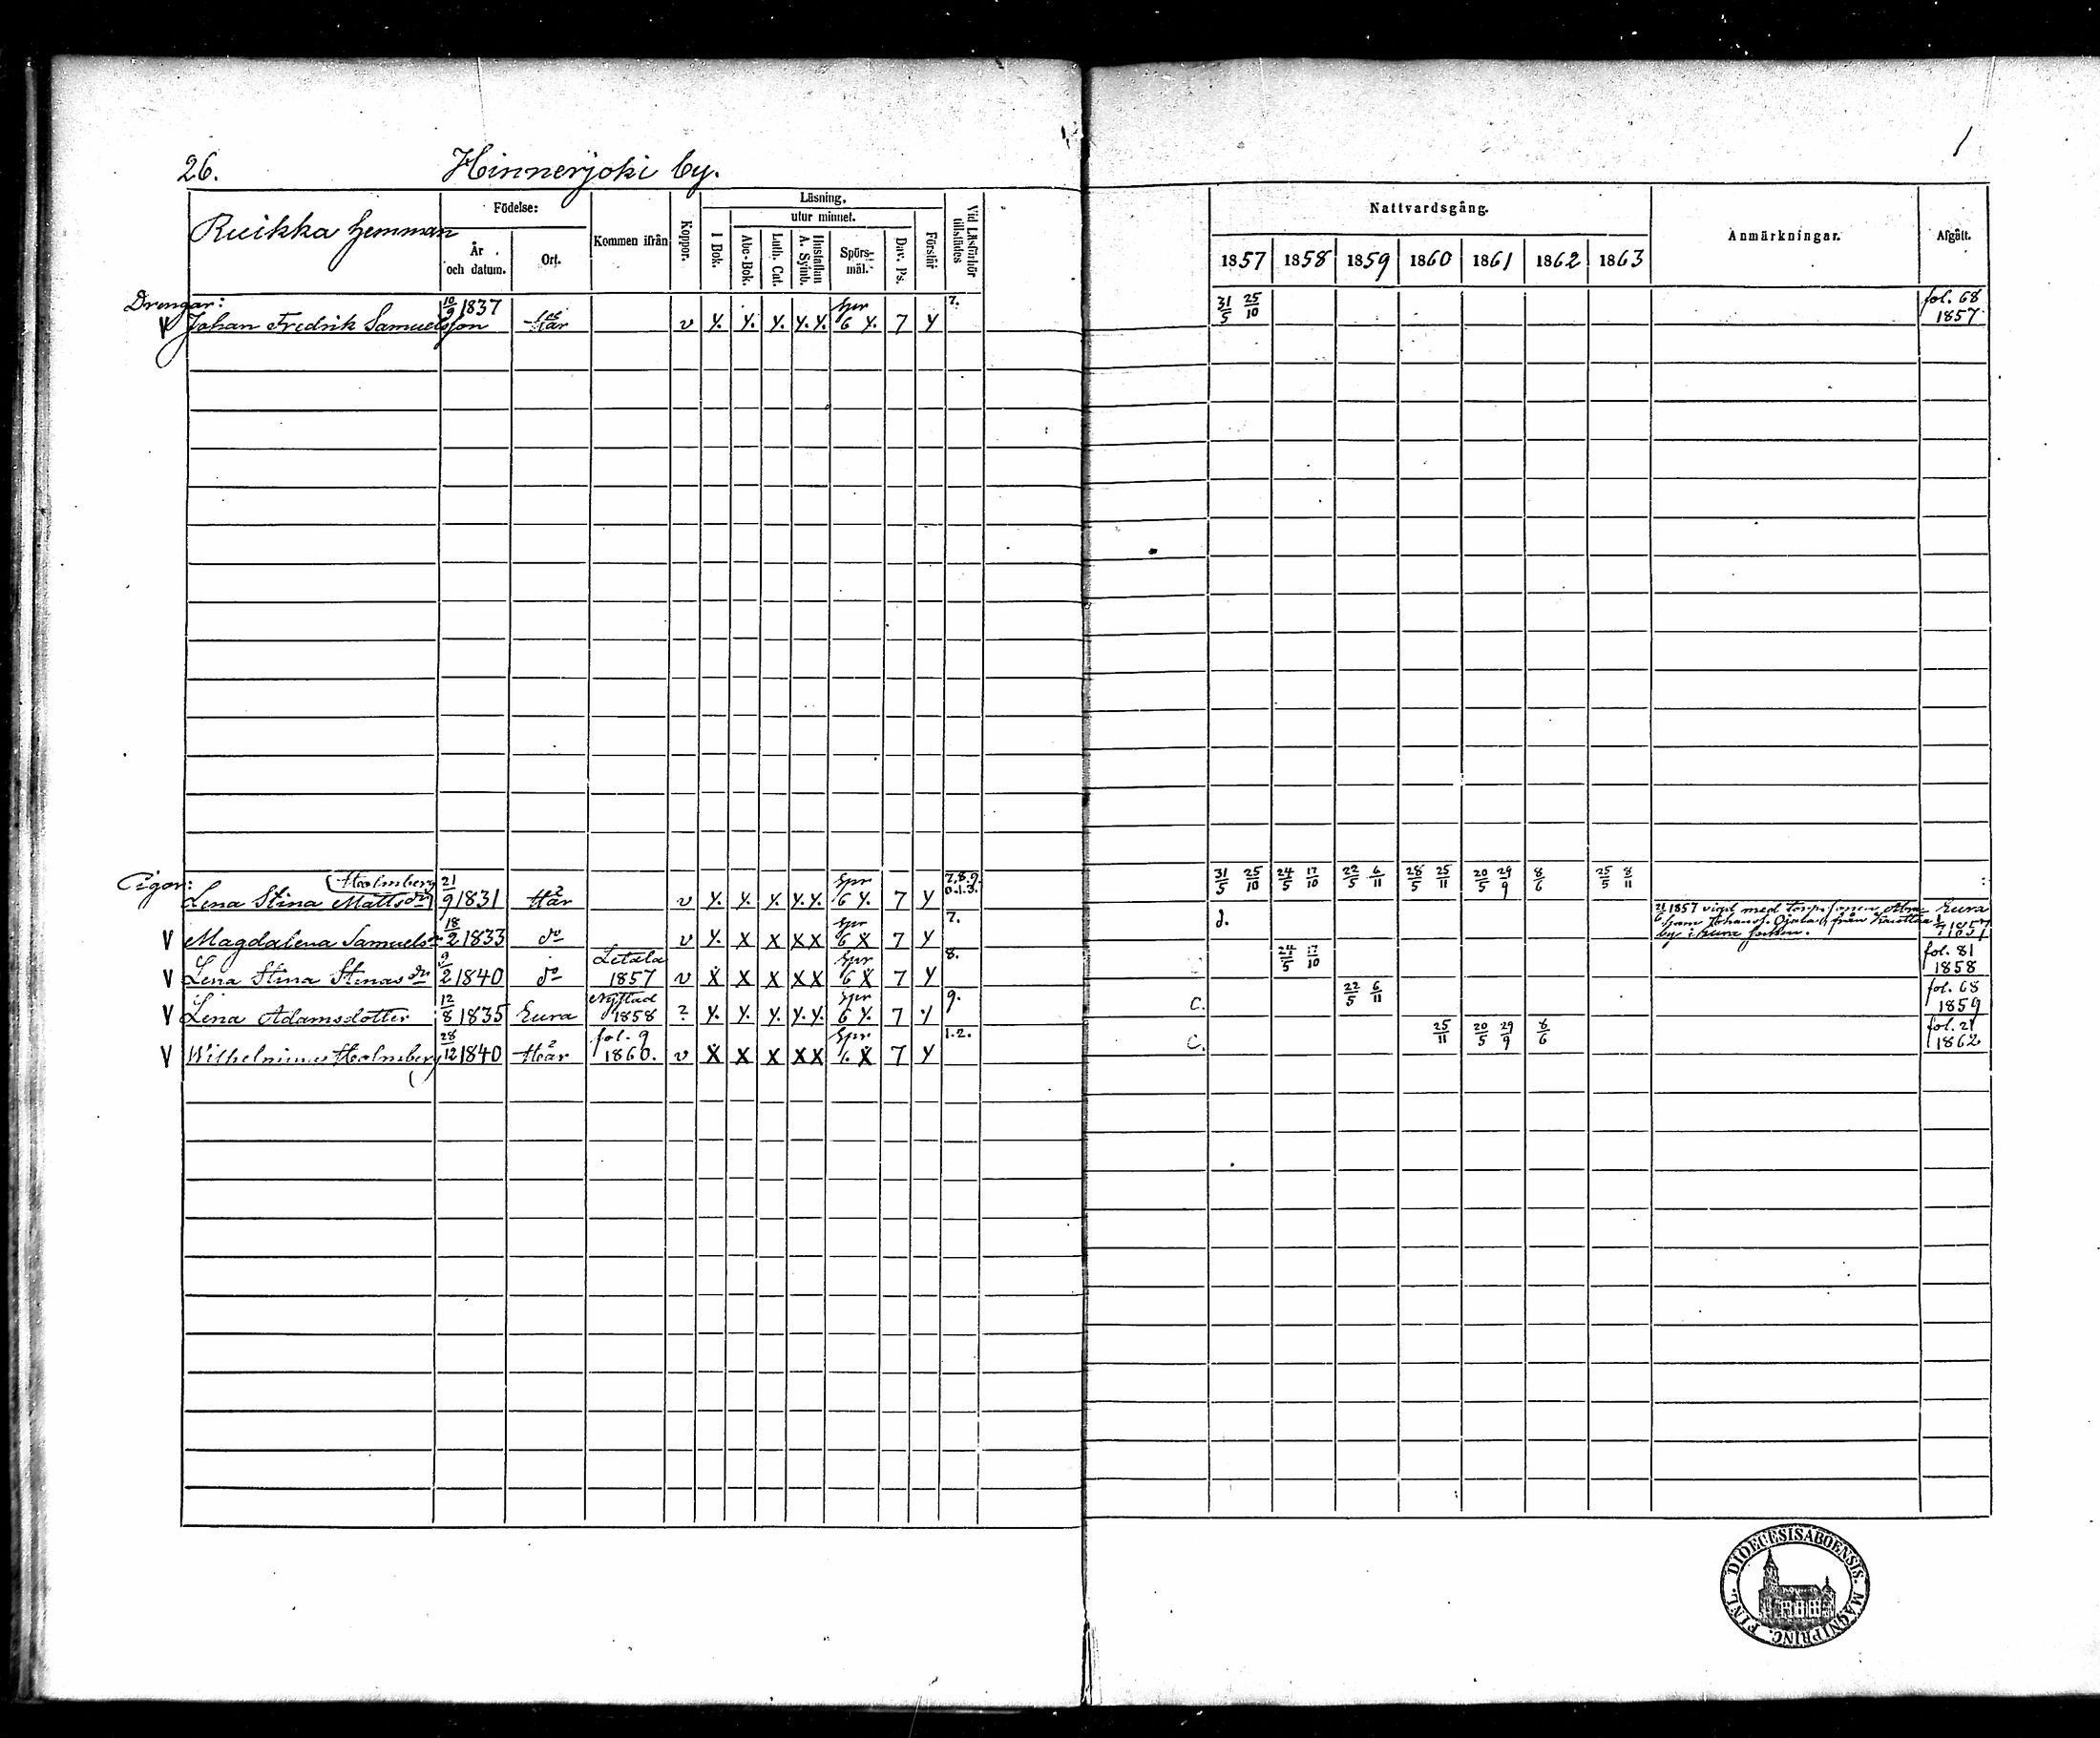 26. Hinnerjoki by. 1
Ruikka hemman
Födelse:
År och datum.
Ort.
Kommen ifrån
Koppor.
Läsning.
I Bok.
utur minnet.
Abc-Bok.
Luth. Cat.
Hustaflan A. Symb.
Spörsmål.
Dav. Ps.
Förstår
Vid Läsförhör tillstädes
Nattvardsgång.
1857 1858 1859 1860 1861 1862 1863
Anmärkningar.
Afgått.
Drengar:
V Johan Fredrik Samuelsson 10/9 1837 Här v Y. Y. Y. Y. Y. Spr 6 Y. 7 Y 7. 31/5 25/10 fol. 68 1857
Pigor:
Holmberg
Lena Stina Mattsdr 21/9 1831 Här v Y. Y. Y. Y. Y. Spr 6 Y. 7 Y 7.8.9. 0.1.3. 31/5 25/10 24/5 17/10 22/5 6/11 28/5 25/11 20/5 29/9 8/6 25/5 8/11
V Magdalena Samuelsdr 18/2 1833 do v Y. X X X X Spr 6 X 7 Y 7. d. 21/6 1857 vigd med Johanss. Ojala från Kauttua by i Eura socken. Eura 1857
V Lena Stina Stinasdr 9/2 1840 do Letala 1857 v X X X X X Spr 6 X 7 Y 8. 24/5 17/10 fol. 81 1858
V Lena Adamsdotter 12/8 1835 Eura Nystad 1858 ? Y. Y. Y. Y. Y. Spr 6 Y. 7 Y 9. C. 22/5 6/11 fol. 68 1859
V Wilhelmina Holmberg 28/12 1840 Här fol. 9 1860. v X X X X X Spr 6 X 7 Y 1.2. C. 25/11 20/5 29/9 8/6 fol. 21 1862
DIOECESIS ABOENSIS. MAGNI PRINC. FINL.